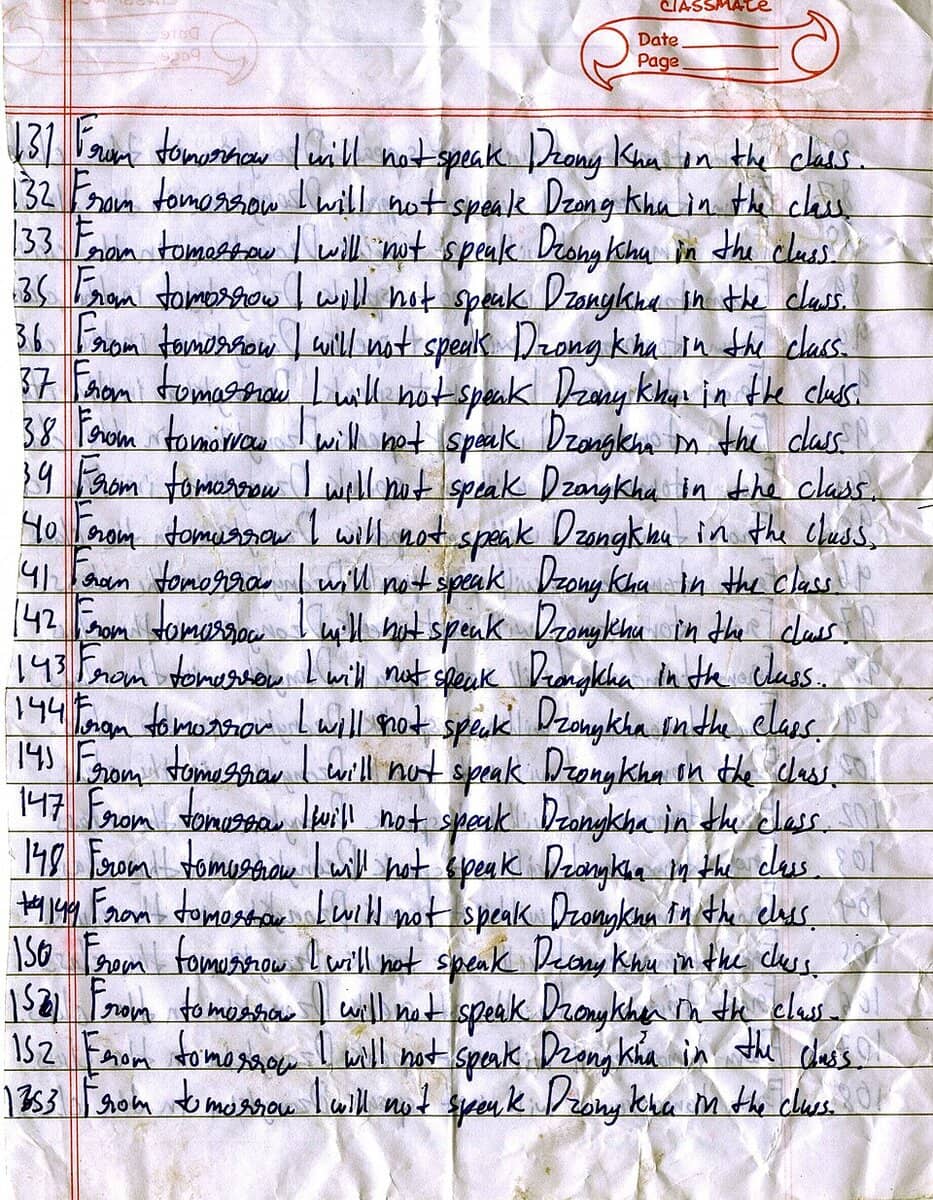 classmate
Date
Page
131 From tomorrow I will not speak Dzongkha in the class.
132 From tomorrow I will not speak Dzongkha in the class.
133 From tomorrow I will not speak Dzongkha in the class.
35 From tomorrow I will not speak Dzongkha in the class.
36 From tomorrow I will not speak Dzongkha in the class.
37 From tomorrow I will not speak Dzongkha in the class.
38 From tomorrow I will not speak Dzongkha in the class
39 From tomorrow I will not speak Dzongkha in the class.
40 From tomorrow I will not speak Dzongkha in the class,
41 From tomorrow I will not speak Dzongkha in the class
142 From tomorrow I will not speak Dzongkha in the class.
143 From tomorrow I will not speak Dzongkha in the class..
144 From tomorrow I will not speak Dzongkha in the class.
145 From tomorrow I will not speak Dzongkha in the class.
147 From tomorrow I will not speak Dzongkha in the class.
148 From tomorrow I will not speak Dzongkha in the class.
149 From tomorrow I will not speak Dzongkha in the class.
150 From tomorrow I will not speak Dzongkha in the class.
151 From tomorrow I will not speak Dzongkha in the class.
152 From tomorrow I will not speak Dzongkha in the class.
153 From tomorrow I will not speak Dzongkha in the class.